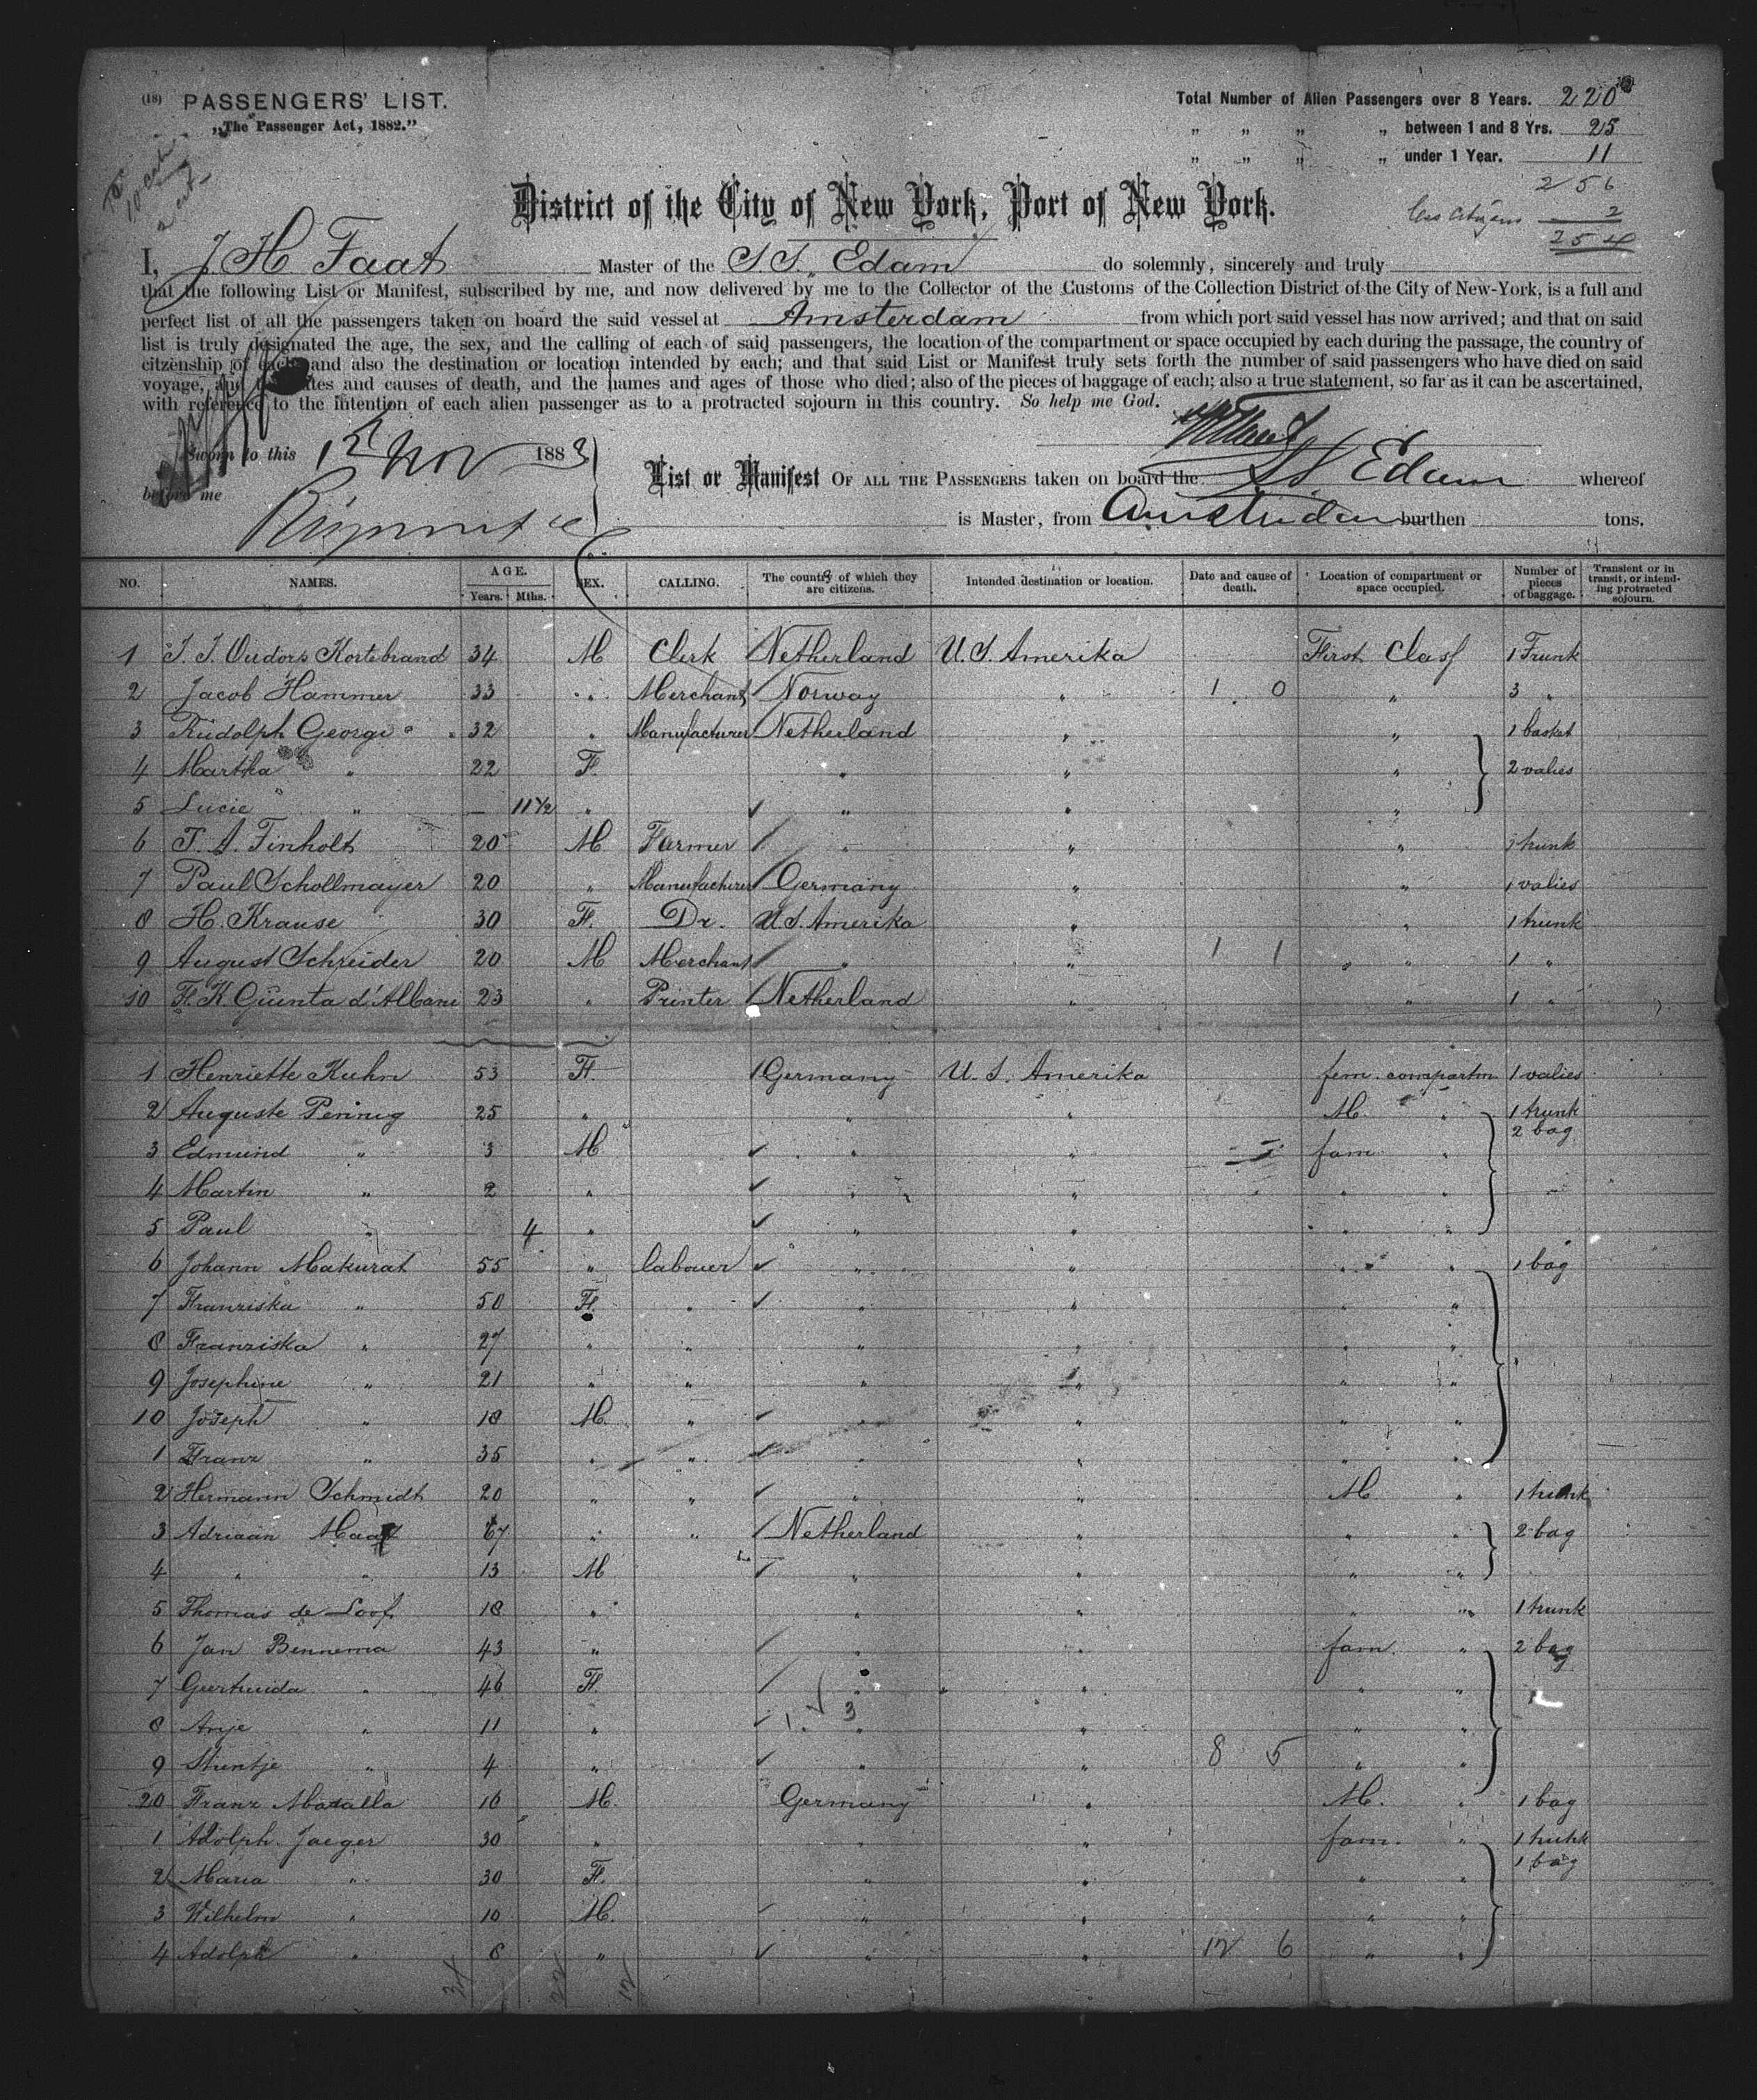 (18) PASSENGERS' LIST.
„The Passenger Act, 1882.”
Total Number of Alien Passengers over 8 Years. 220
„ „ „ „ between 1 and 8 Yrs. 25
„ „ „ „ under 1 Year. 11
256
less citizens 2
254
District of the City of New York, Port of New York.
I, J H Taat Master of the S.S. Edam do solemnly, sincerely and truly
that the following List or Manifest, subscribed by me, and now delivered by me to the Collector of the Customs of the Collection District of the City of New-York, is a full and
perfect list of all the passengers taken on board the said vessel at Amsterdam from which port said vessel has now arrived; and that on said
list is truly designated the age, the sex, and the calling of each of said passengers, the location of the compartment or space occupied by each during the passage, the country of
citzenship of each, and also the destination or location intended by each; and that said List or Manifest truly sets forth the number of said passengers who have died on said
voyage, and the dates and causes of death, and the names and ages of those who died; also of the pieces of baggage of each; also a true statement, so far as it can be ascertained,
with reference to the intention of each alien passenger as to a protracted sojourn in this country. So help me God.
Sworn to this 12 Nov 1883
before me
List or Manifest OF ALL THE PASSENGERS taken on board the SS Edam whereof
is Master, from Amsterdam burthen tons.
NO. NAMES. AGE. Years. Mths. SEX. CALLING. The country of which they are citizens. Intended destination or location. Date and cause of death. Location of compartment or space occupied. Number of pieces of baggage. Transient or in transit, or intending protracted sojourn.
1 J. J. Oudors Kortebrand 34 M Clerk Netherland U.S. Amerika First Class 1 Trunk
2 Jacob Hammer 33 „ Merchant Norway „ 1 0 „ 3 „
3 Rudolph George 32 „ Manufacturer Netherland „ „ 1 basket
4 Martha „ 22 F. „ „ „ 2 valies
5 Lucie „ — 11½ „ „ „ „
6 T. A. Finholt 20 M Farmer „ „ „ 1 trunk
7 Paul Schollmayer 20 „ Manufacturer Germany „ „ 1 valies
8 H. Krause 30 F. Dr. U.S. Amerika „ „ 1 trunk
9 August Schreider 20 M Merchant „ „ 1 1 „ „ 1 „
10 F. K. Giunta d'Albani 23 „ Printer Netherland „ „ 1 „
1 Henriette Kuhn 53 F. Germany U. S. Amerika fem. compartm 1 valies
2 Auguste Pennig 25 „ „ „ M. „ 1 trunk
2 bag
3 Edmund „ 3 M „ „ fam. „
4 Martin „ 2 „ „ „ „ „
5 Paul „ 4 „ „ „ „ „
6 Johann Makurat 55 „ labouer „ „ „ „ 1 bag
7 Franziska „ 50 F. „ „ „ „ „
8 Franziska „ 27 „ „ „ „ „ „
9 Josephine „ 21 „ „ „ „ „ „
10 Joseph „ 18 M. „ „ „ „ „
1 Franz „ 35 „ „ „ „ „ „
2 Hermann Schmidt 20 „ „ „ „ M „ 1 trunk
3 Adriaan 67 „ „ Netherland „ „ „ 2 bag
4 „ „ 13 M „ „ „ „
5 Thomas de Loof 18 „ „ „ „ „ 1 trunk
6 Jan Bennema 43 „ „ „ fam. „ 2 bag
7 Geertruida „ 46 F. „ „ „ „
8 Anje „ 11 „ 1. 3 „ „ „ „
9 Stientje „ 4 „ „ „ 8 5 „ „
20 Franz 16 M. Germany „ M. „ 1 bag
1 Adolph Jaeger 30 „ „ „ fam. „ 1 trunk
1 bag
2 Maria „ 30 F. „ „ „ „
3 Wilhelm „ 10 M. „ „ „ „
4 Adolph „ 8 „ „ „ 12 6 „ „
34 22 12